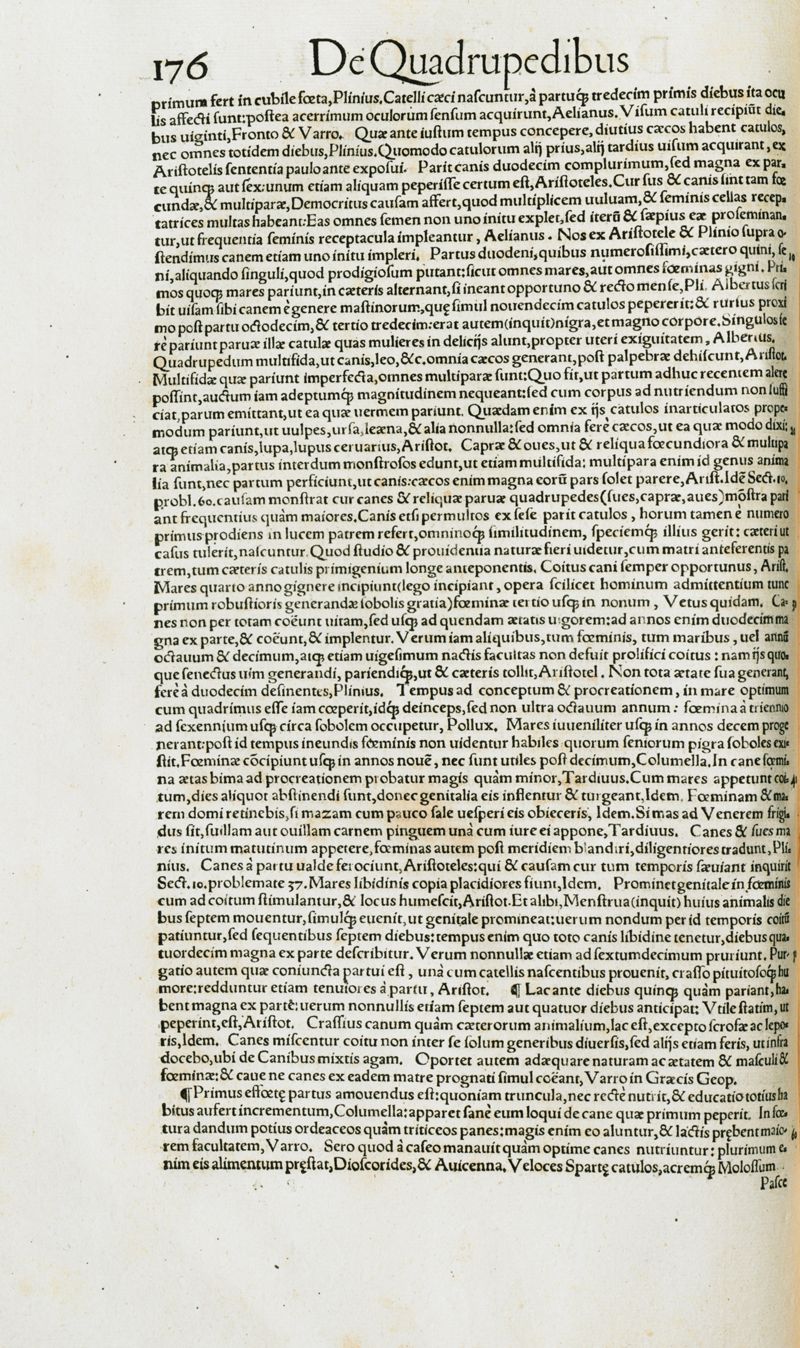 176 De Quadrupedibus
primum fert in cubile fœta,Plinius.Catelli cæci nascuntur,à partuq́; tredecim primis diebus ita ocu
lis affecti sunt:postea acerrimum oculorum sensum acquirunt,Aelianus.Visum catuli recipiūt die-
bus uiginti,Fronto & Varro. Quæ ante iustum tempus concepere,diutius cæcos habent catulos,
nec omnes totidem diebus,Plinius.Quomodo catulorum alij prius,alij tardius uisum acquirant,ex
Aristotelis sententia paulo ante exposui. Parit canis duodecim complurimum,sed magna ex par-
te quinq; aut sex:unum etiam aliquam peperisse certum est,Aristoteles.Cur sus & canis sint tam fœ
cundæ,& multiparæ,Democritus causam affert,quod multiplicem uuluam,& seminis cellas recep-
tatrices multas habeant:Eas omnes semen non uno initu explet,sed iterū & sæpius eæ proseminan-
tur,ut frequentia seminis receptacula impleantur, Aelianus. Nos ex Aristotele & Plinio supra o-
stendimus canem etiam uno initu impleri. Partus duodeni,quibus numerosissimi,cætero quini, se„
ni,aliquando singuli,quod prodigiosum putant:sicut omnes mares,aut omnes fœminas gigni. Pri-
mos quoq; mares pariunt,in cæteris alternant,si ineant opportuno & recto mense,Pli. Albertus scri
bit uisam sibi canem è genere mastinorum,quę simul nouendecim catulos pepererit:& rursus proxi
mo post partu octodecim,& tertio tredecim:erat autem(inquit)nigra,et magno corpore.Singulos fe
rè pariunt paruæ illæ catulæ quas mulieres in delicijs alunt,propter uteri exiguitatem, Albertus.
Quadrupedum multifida,ut canis,leo,&c.omnia cæcos generant,post palpebræ dehiscunt,Aristot.
Multifidæ quæ pariunt imperfecta,omnes multiparæ sunt:Quo fit,ut partum adhuc recentem alere
possint,auctum iam adeptumq́; magnitudinem nequeant:sed cum corpus ad nutriendum non suffi
ciat,parum emittant,ut ea quæ uermem pariunt. Quædam enim ex ijs catulos inarticulatos prope-
modum pariunt,ut uulpes,ursa,leæna,& alia nonnulla:sed omnia ferè cæcos,ut ea quæ modo dixi:„
atq; etiam canis,lupa,lupus ceruarius,Aristot. Capræ & oues,ut & reliqua fœcundiora & multipa
ra animalia,partus interdum monstrosos edunt,ut etiam multifida: multipara enim id genus anima
lia sunt,nec partum perficiunt,ut canis:cæcos enim magna eorū pars solet parere,Arist.Idē Sect.10.
probl.60.causam monstrat cur canes & reliquæ paruæ quadrupedes(sues,capræ,aues)mōstra pari
ant frequentius quàm maiores.Canis etsi permultos ex sese parit catulos , horum tamen è numero
primus prodiens in lucem patrem refert,omninoq́; similitudinem, speciemq́; illius gerit: cæteri ut
casus tulerit,nascuntur.Quod studio & prouidentia naturæ fieri uidetur,cum matri anteferentis pa
trem,tum cæteris catulis primigenium longe anteponentis. Coitus cani semper opportunus, Arist.
Mares quarto anno gignere incipiunt(lego incipiant, opera scilicet hominum admittentium tunc
primum robustioris generandæ sobolis gratia)fœminæ tertio usq; in nonum , Vetus quidam. Ca-
nes non per totam coëunt uitam,sed usq; ad quendam ætatis uigorem:ad annos enim duodecim ma
gna ex parte,& coëunt,& implentur. Verum iam aliquibus,tum fœminis, tum maribus , uel annū
octauum & decimum,atq; etiam uigesimum nactis facultas non defuit prolifici coitus : nam ijs quo-
que senectus uim generandi, pariendiq́;,ut & cæteris tollit,Aristotel. Non tota ætate sua generant,
ferè à duodecim desinentes,Plinius. Tempus ad conceptum & procreationem, in mare optimum
cum quadrimus esse iam cœperit,idq́; deinceps,sed non ultra octauum annum : fœmina à triennio
ad sexennium usq; circa sobolem occupetur, Pollux. Mares iuueniliter usq; in annos decem proge
nerant:post id tempus ineundis fœminis non uidentur habiles quorum seniorum pigra soboles exi-
stit.Fœminæ cōcipiunt usq; in annos nouē, nec sunt utiles post decimum,Columella.In cane fœmi-
na ætas bima ad procreationem probatur magis quàm minor,Tardiuus.Cum mares appetunt coi-
tum,dies aliquot abstinendi sunt,donec genitalia eis inflentur & turgeant,Idem. Fœminam & ma-
rem domi retinebis,si mazam cum pauco sale uesperi eis obieceris, Idem.Si mas ad Venerem frigi-
dus sit,suillam aut ouillam carnem pinguem unà cum iure ei appone,Tardiuus. Canes & sues ma
res initum matutinum appetere,fœminas autem post meridiem blandiri,diligentiores tradunt,Pli-
nius. Canes à partu ualde ferociunt,Aristoteles:qui & causam cur tum temporis sæuiant inquirit
Sect.10.problemate 37.Mares libidinis copia placidiores fiunt,Idem. Prominet genitale in fœminis
cum ad coitum stimulantur,& locus humescit,Aristot.Et alibi,Menstrua(inquit)huius animalis die
bus septem mouentur,simulq́; euenit,ut genitale promineat:uerum nondum per id temporis coitū
patiuntur,sed sequentibus septem diebus:tempus enim quo toto canis libidine tenetur,diebus qua-
tuordecim magna ex parte describitur. Verum nonnullæ etiam ad sextumdecimum pruriunt. Pur-
gatio autem quæ coniuncta partui est , unà cum catellis nascentibus prouenit, crasso pituitosoq́; hu
more:redduntur etiam tenuiores à partu, Aristot. ¶ Lac ante diebus quinq; quàm pariant,ha-
bent magna ex parte:uerum nonnullis etiam septem aut quatuor diebus anticipat: Vtile statim, ut
peperint,est,Aristot. Crassius canum quàm cæterorum animalium,lac est,excepto scrofæ ac lepo-
ris,Idem. Canes miscentur coitu non inter se solum generibus diuersis,sed alijs etiam feris, ut infra
docebo,ubi de Canibus mixtis agam. Oportet autem adæquare naturam ac ætatem & masculi &
fœminæ:& caue ne canes ex eadem matre prognati simul coëant,Varro in Græcis Geop.
¶ Primus effœtę partus amouendus est:quoniam truncula,nec rectè nutrit,& educatio totius ha
bitus aufert incrementum,Columella:apparet sanè eum loqui de cane quæ primum peperit. In fœ-
tura dandum potius ordeaceos quàm triticeos panes:magis enim eo aluntur,& lactis prębent maio-
rem facultatem,Varro. Sero quod à caseo manauit quàm optime canes nutriuntur: plurimum e-
nim eis alimentum pręstat,Dioscorides,& Auicenna. Veloces Spartę catulos,acremq́; Molossum
Pasce